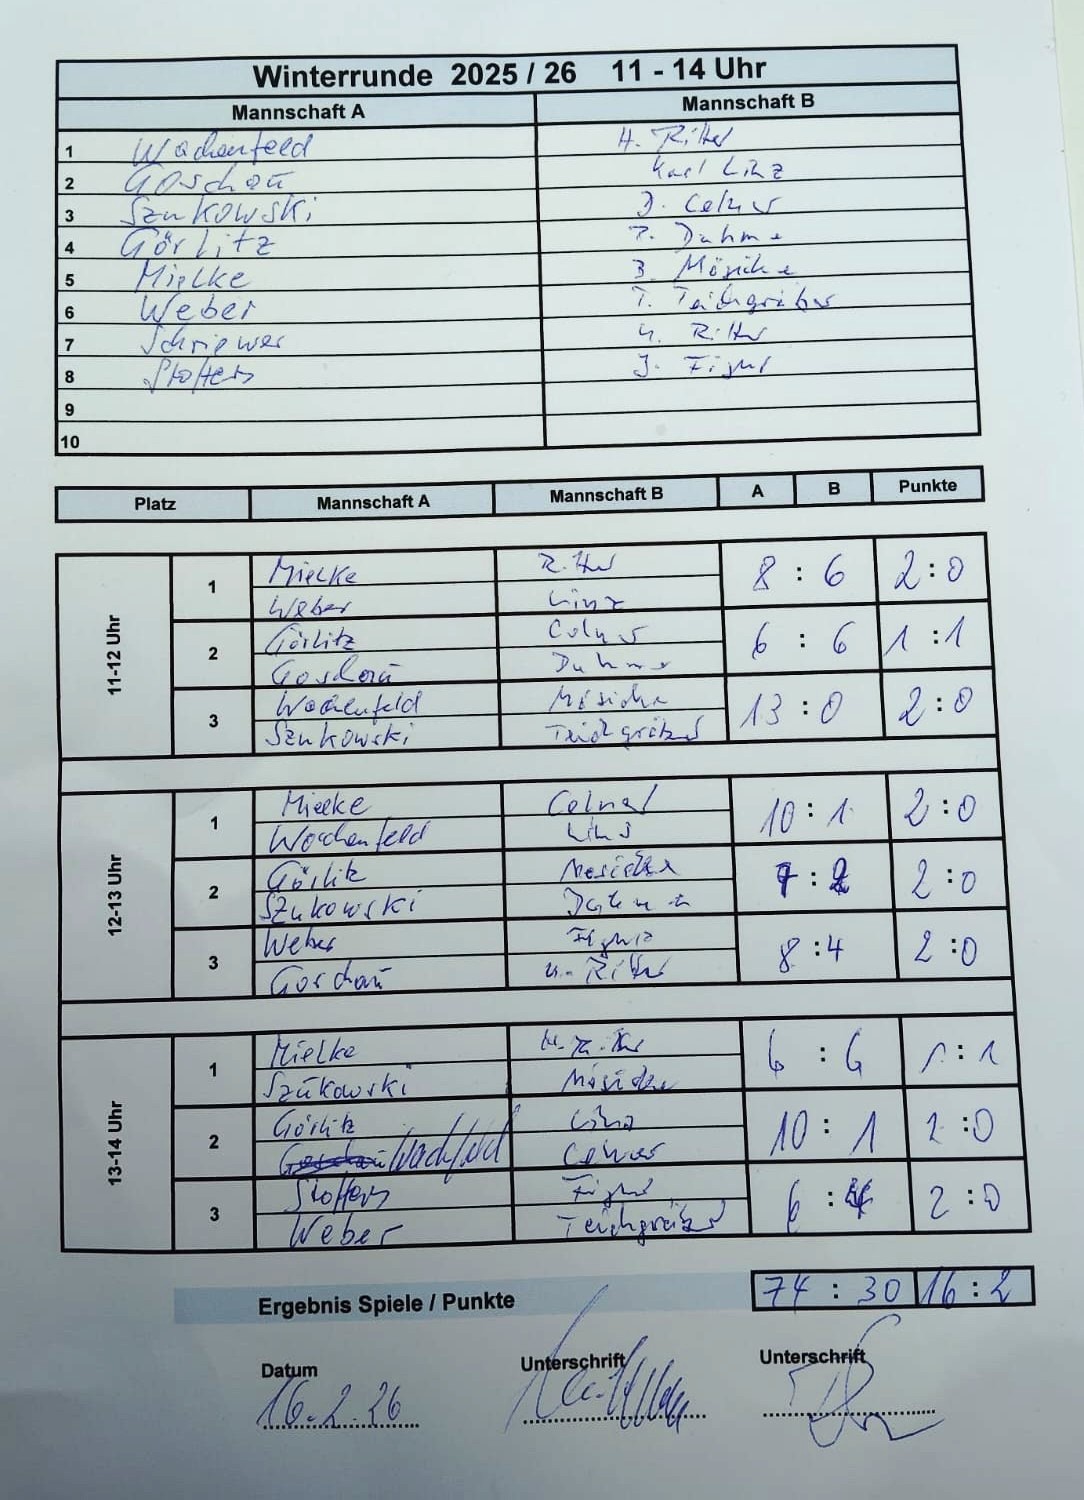 Winterrunde 2025 / 26 11 - 14 Uhr
Mannschaft A Mannschaft B
1 Wachenfeld H. Ritter
2 Goschau Karl Linz
3 Szukowski
4 Görlitz P. Dahme
5 Mielke
6 Weber T. Teichgräber
7 Schriewer U. Ritter
8 Stoffers
9
10
Platz Mannschaft A Mannschaft B A B Punkte
11-12 Uhr
1 Mielke Ritter 8 : 6 2 : 0
Weber Linz
2 Görlitz 6 : 6 1 : 1
Goschau Dahme
3 Wachenfeld 13 : 0 2 : 0
Szukowski Teichgräber
12-13 Uhr
1 Mielke 10 : 1 2 : 0
Wachenfeld
2 Görlitz 7 : 2 2 : 0
Szukowski
3 Weber 8 : 4 2 : 0
Goschau U. Ritter
13-14 Uhr
1 Mielke H. Ritter 6 : 6 1 : 1
Szukowski
2 Görlitz 10 : 1 2 : 0
3 Stoffers 6 : 4 2 : 0
Weber Teichgräber
Ergebnis Spiele / Punkte 74 : 30 16 : 2
Datum Unterschrift Unterschrift
16.2.26